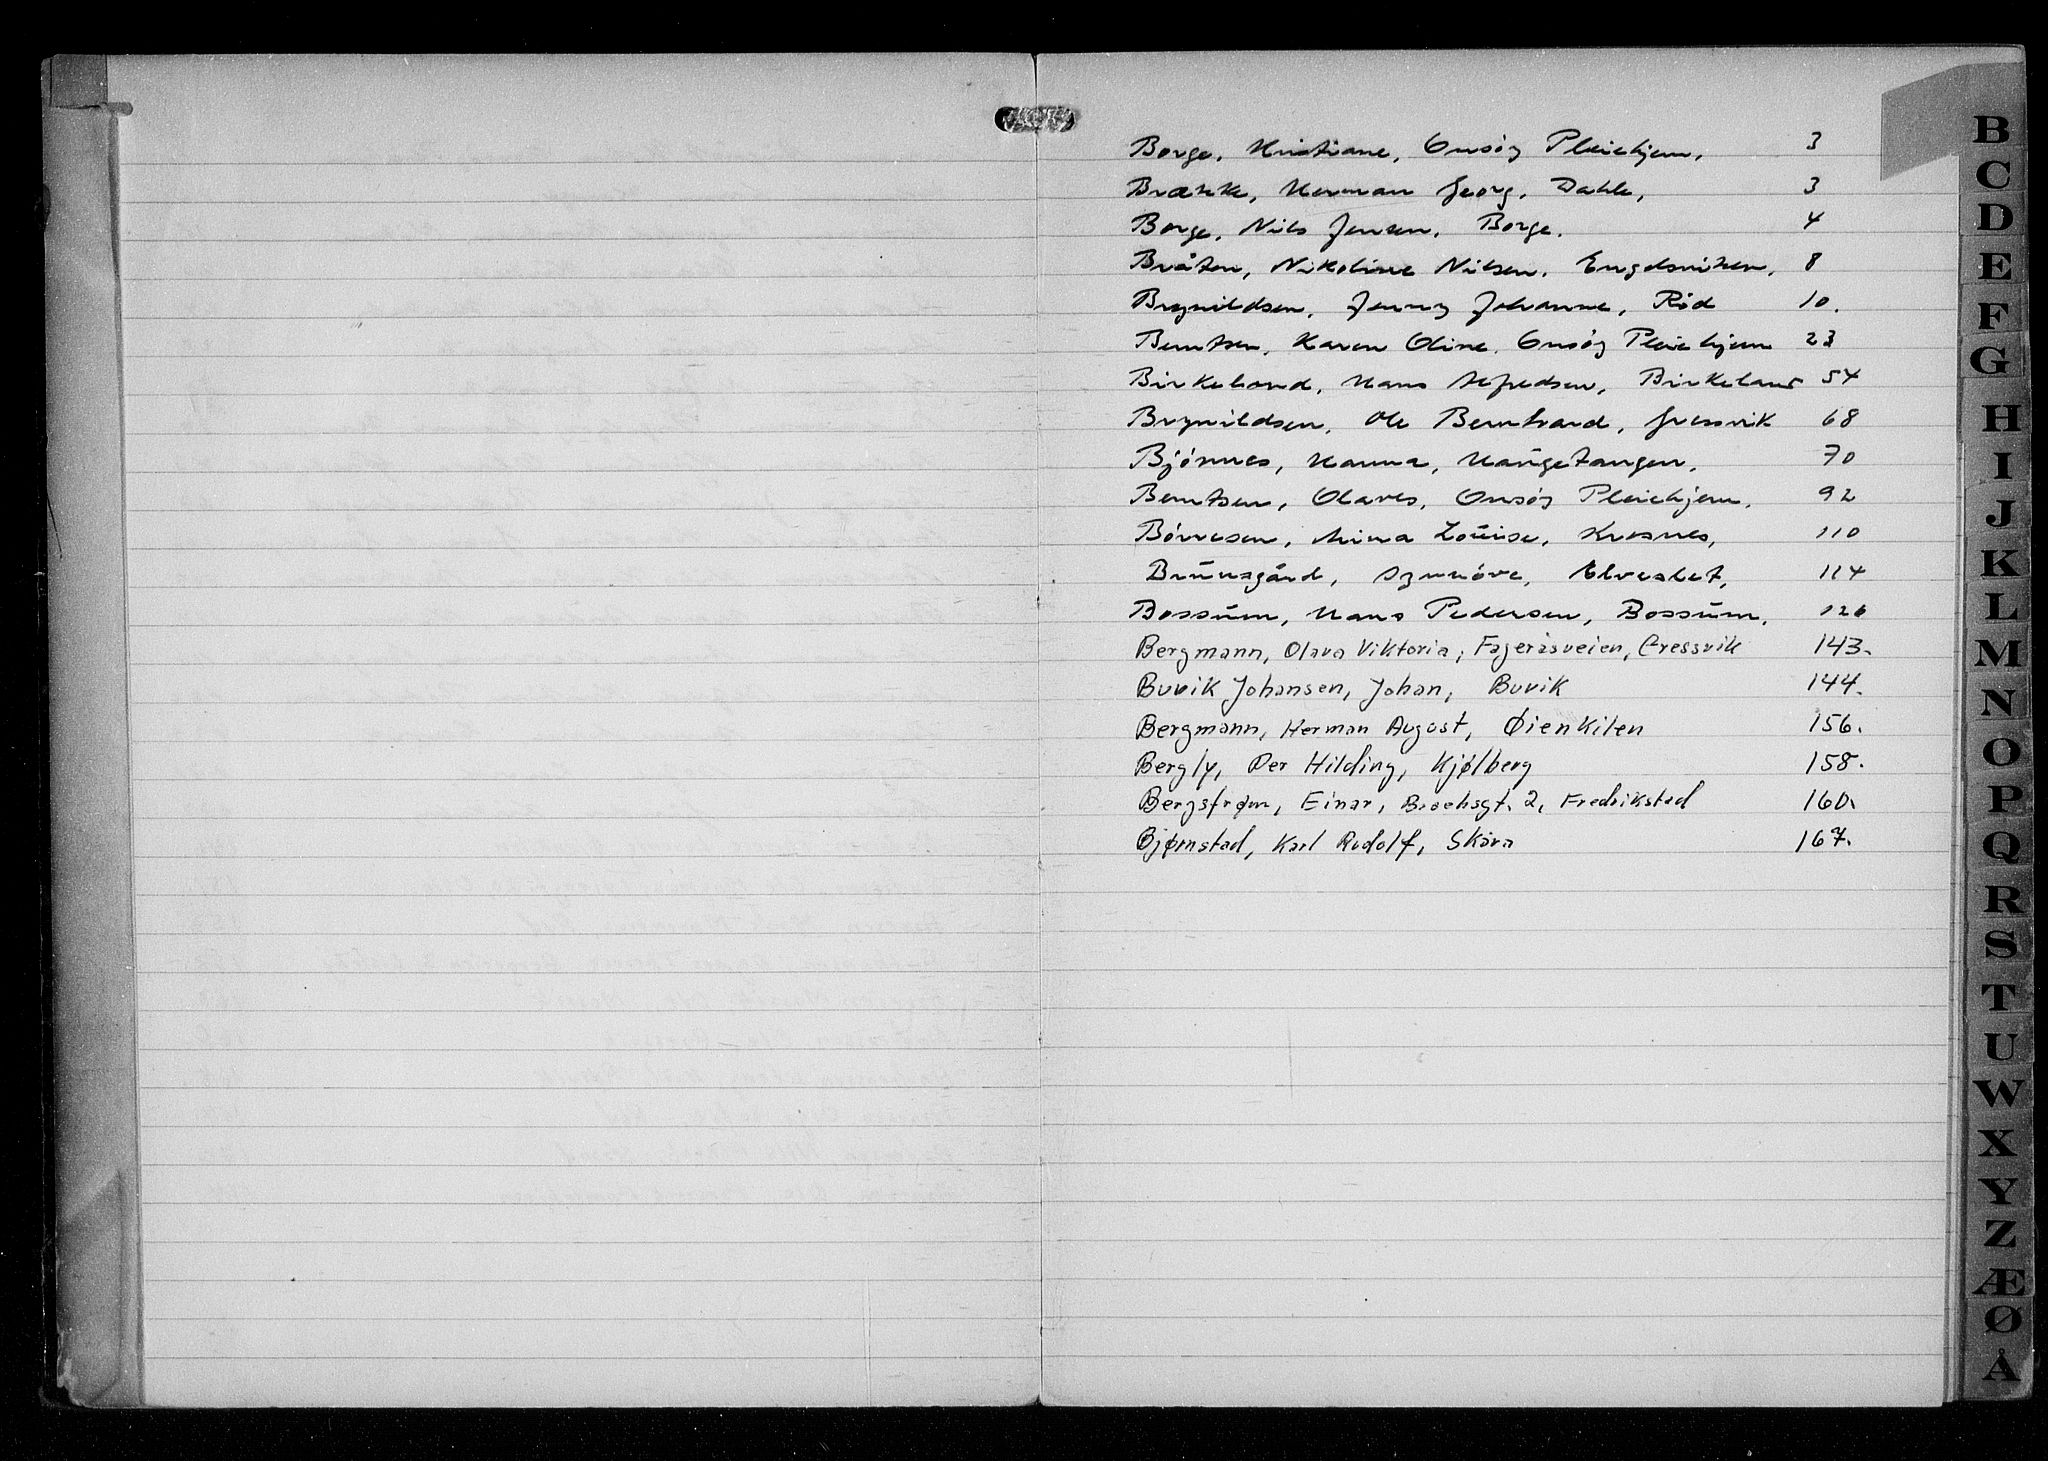 Borge, Kristiane, Onsöy Pleiehjem, 3
Brække, Herman Georg, Dahle, 3
Borge, Nils Jensen, Borge. 4
Bråten, Nikoline Nilsen, Engelsviken, 8
Brynildsen, Jenny Johanne, Röd 10.
Berntsen, Karen Oline, Onsöy Pleiehjem 23
Birkeland, Hans Alfredsen, Birkeland 54
Brynildsen, Ole Berntrand, Gressvik 68
Björnnes, Hanna, Haugetangen, 70
Berntsen, Olaves, Onsöy Pleiehjem, 92
Börresen, Mina Louise, Krosnes, 110
Bruusgård, Synnöve, Elveslet, 114
Bossum, Hans Pedersen, Bossum, 126
Bergmann, Olava Viktoria, Fageråsveien, Gressvik 143.
Buvik Johansen, Johan, Buvik 144.
Bergmann, Herman August, ØienKilen 156.
Bergly, Per Hilding, Kjølberg 158.
Bergstrøm, Einar, Brochsgt. 2, Fredrikstad 160.
Bjørnstad, Karl Rudolf, Skåra 167.
B
C
D
E
F
G
H
I
J
K
L
M
N
O
P
Q
R
S
T
U
W
X
Y
Z
Æ
Ø
Å